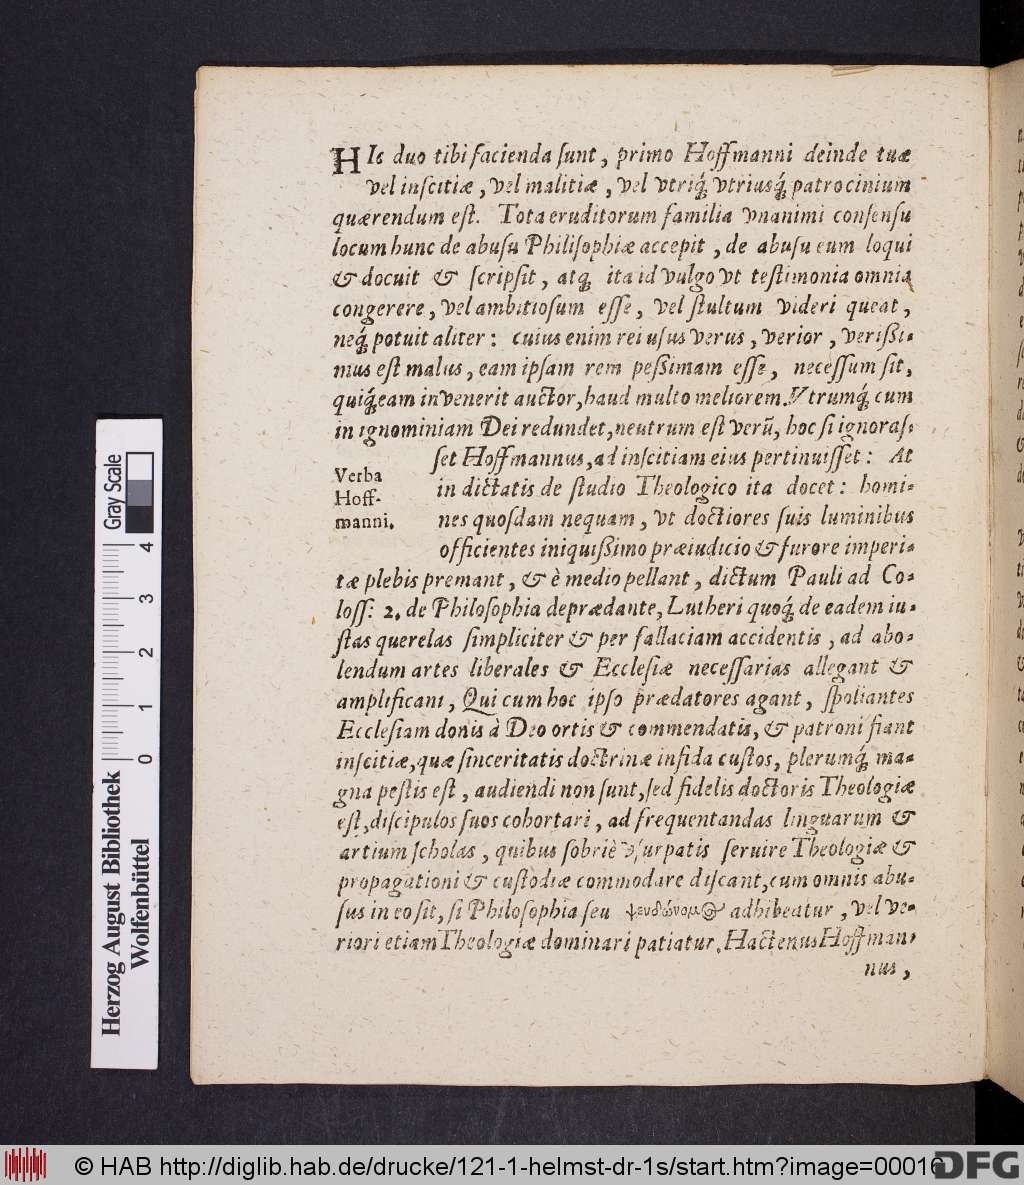 HIc duo tibi facienda ſunt, primo Hoffmanni deinde tuæ
vel inſcitiæ, vel malitiæ, vel vtriq́; vtriusq́; patrocinium
quærendum eſt. Tota eruditorum familia vnanimi conſenſu
locum hunc de abuſu Philiſophiæ accepit, de abuſu eum loqui
& docuit & ſcripſit, atq; ita id vulgo vt teſtimonia omnia
congerere, vel ambitioſum eſſe, vel ſtultum videri queat,
neq́; potuit aliter: cuius enim rei uſus verus, verior, verißi-
mus eſt malus, eam ipſam rem peßimam eſſe, neceſſum ſit,
quiq́; eam invenerit auctor, haud multo meliorem. Vtrumq́; cum
in ignominiam Dei redundet, neutrum eſt verũ, hoc ſi ignoraſ-
ſet Hoffmannus, ad inſcitiam eius pertinuiſſet: At
Verba
Hoff-
manni.
in dictatis de ſtudio Theologico ita docet: homi-
nes quoſdam nequam, vt doctiores ſuis luminibus
officientes iniquißimo præiudicio & furore imperi-
tæ plebis premant, & è medio pellant, dictum Pauli ad Co-
loſſ: 2. de Philoſophia deprædante, Lutheri quoq́; de eadem iu-
ſtas querelas ſimpliciter & per fallaciam accidentis, ad abo-
lendum artes liberales & Eccleſiæ neceſſarias allegant &
amplificant, Qui cum hoc ipſo prædatores agant, ſpoliantes
Eccleſiam donis à Deo ortis & commendatis, & patroni fiant
inſcitiæ, quæ ſinceritatis doctrinæ infida cuſtos, plerumq́; ma-
gna peſtis eſt, audiendi non ſunt, ſed fidelis doctoris Theologiæ
eſt, diſcipulos ſuos cohortari, ad frequentandas linguarum &
artium ſcholas, quibus ſobriè vſurpatis ſeruire Theologiæ &
propagationi & cuſtodiæ commodare diſcant, cum omnis abu-
ſus in eo ſit, ſi Philoſophia ſeu ψευδώνομ Θ adhibeatur, vel ve-
riori etiam Theologiæ dominari patiatur. Hactenus Hoffman-
nus,
Gray Scale
0 1 2 3 4
Herzog August Bibliothek
Wolfenbüttel
© HAB http://diglib.hab.de/drucke/121-1-helmst-dr-1s/start.htm?image=00016
DFG